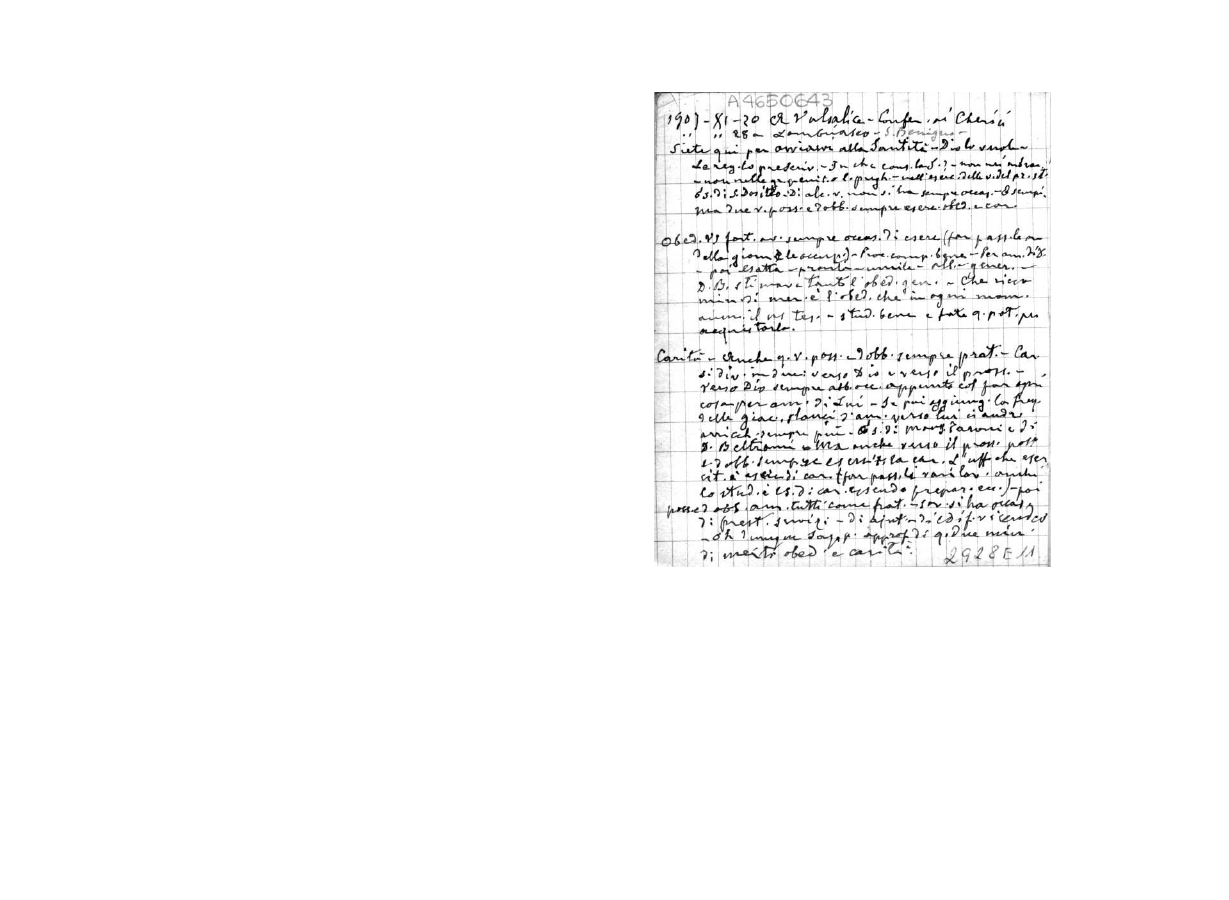 A4650643
1907-XI-20 A Valsalice - Confer. ai Chierici
" " 28 a Lombriasco - S. Benigno -
Siete qui per avviarvi alla Santità - Dio lo vuole -
La reg. lo prescriv. - In che cons. la S.? - non nei
- non nelle penit. o l. pregh. - nell'eserc. delle v. del pr. st.
Di alc. v. non si ha sempre occas. -
ma due v. poss. e dobb. sempre eserc. obed. e car.
Obed. sempre occas. di eserc. (far pass. le
della giorn. e le occup.) - bene - Per am. di
- poi esatta - pronta - umile - all. - gener. -
D. B. stimava tanto l'obed. gen. - Che ricca
min. di mer. è l'obed. che in ogni mom.
aum. il vs tes. - stud. bene e fate q. pot. per
acquistarla.
Carità - Anche q. v. poss. e dobb. sempre prat. - Car.
si div. in due: verso Dio e verso il pross. -
verso Dio sempre abb. occ. appunto col far ogni
cosa per am. di Lui - Se poi aggiung. la freq.
delle giac. slanci d'am. verso Lui ci andr.
arricch. sempre più - Es. di e di
D. Beltrami - Ma anche verso il pross. poss.
e dobb. sempre esercit. la car. L'uff. che eser-
cit. è eserc. di car. (far pass. li vari lav. anche
lo stud. è es. di car. essendo prepar. ecc.) - poi
poss. e dobb. am. tutti come frat. - si ha occas.
di prest. servizi - di ajut. - di edif. vicend.
- oh dunque approf. di q. due min.
di meriti obed. e carità.
2928E11